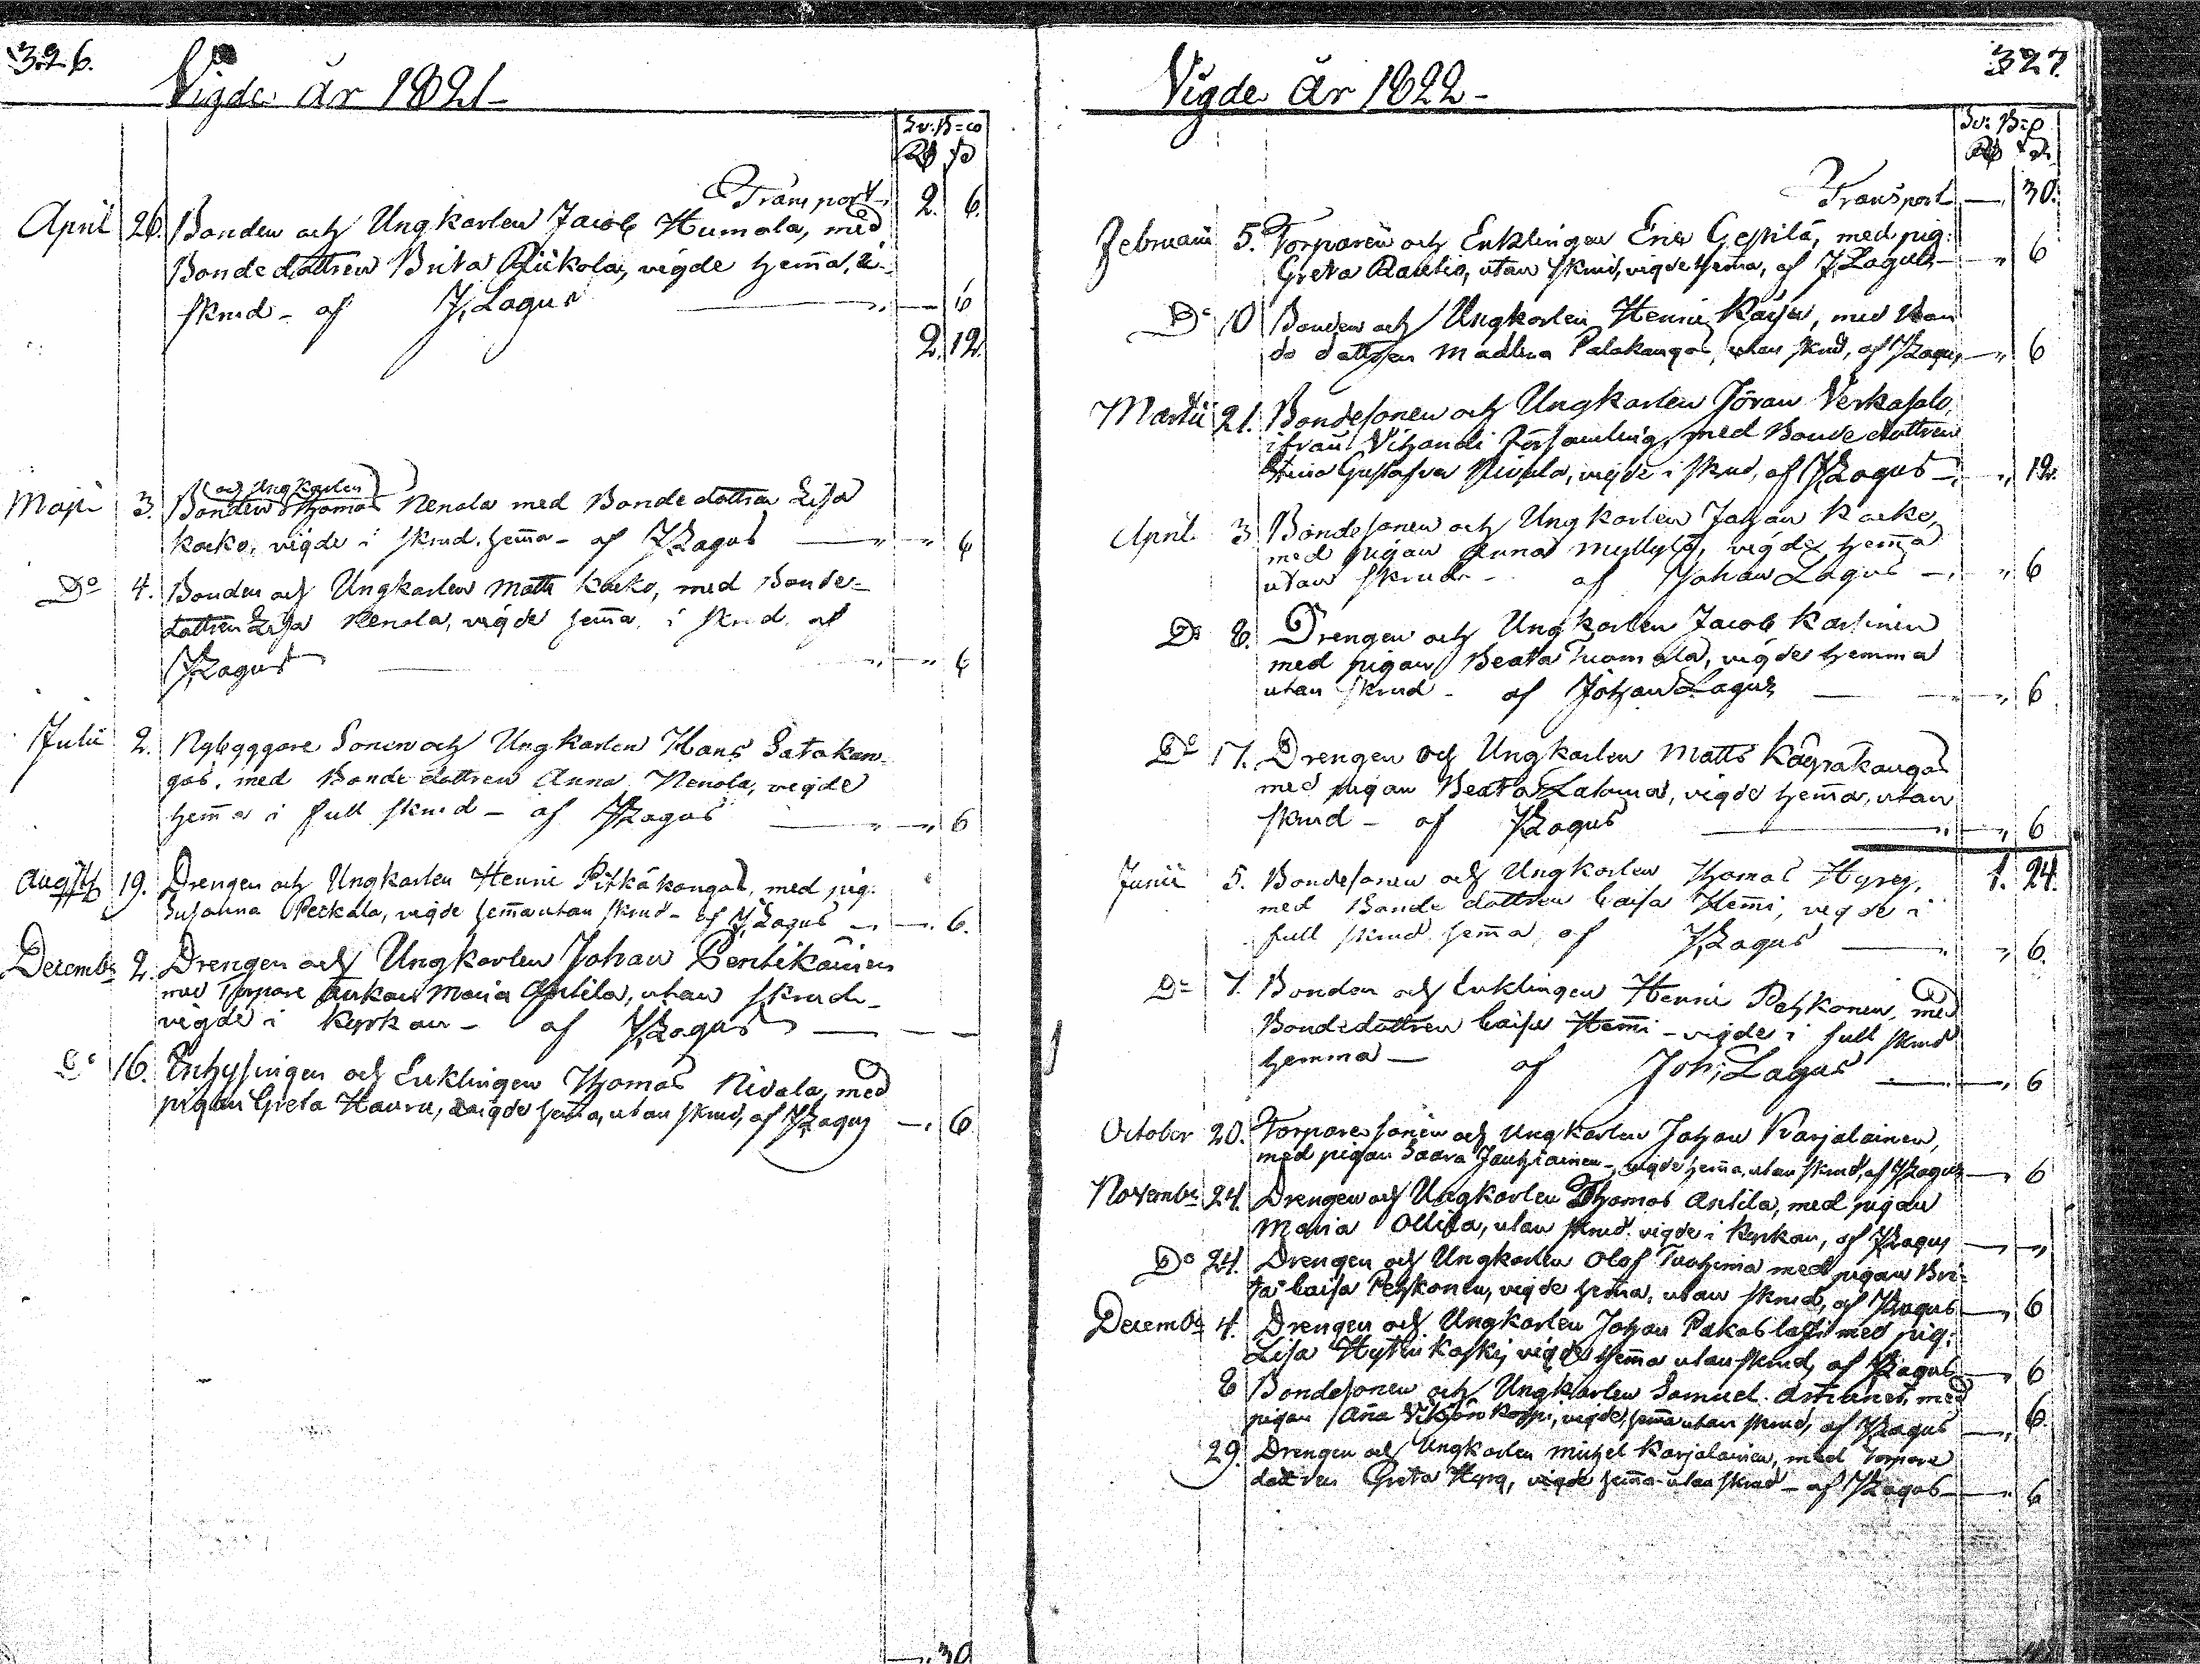 326.
Vigde år 1821-
Sv: B=co
Rd s
Transport 2. 6.
April 26. Bonden och Ungkarlen Jacob Humala, med
Bondedottren Brita Rückola, vigde hem̄a, u-
skrud - af J, Lagus 6
2. 12.
och Ungkarlen
Maji 3. Bonden Thomas Nenola med Bondedottren Lisa
Karko, vigde i skrud. hem̄a - af J, Lagus 6
Do 4. Bonden och Ungkarlen Matts Karko, med Bonde-
dottren Lisa Nenola, vigde hem̄a, i skrud. af
J, Lagus 6
Julii 2. Nybyggare Sonen och Ungkarlen Hans Satakan-
gas, med Bonde dottren Anna Nenola, vigde
hem̄a i full skrud - af J, Lagus 6
19. Drengen och Ungkarlen Henric Pitkäkangas, med pig:
Susanna Peckala, vigde hem̄a utan skrud - af J, Lagus 6.
Decembr 2. Drengen och Ungkarlen Johan Pentikäinen
med Torpare Enkan Maria Antila, utan skrud-
vigde i Kyrkan - af J, Lagus
Do 16. Inhysingen och Enklingen Thomas Nivala, med
pigan Greta Hauru, vigde hem̄a, utan skrud, af J, Lagus 6
30
327.
Vigde År 1822-
Sv: B=co
Transport 30.
Februarii 5. Torparen och Enklingen Eric Geppilä, med pig:
Greta Rautio, utan skrud, vigde hem̄a, af J. Lagus 6
Do 10 Bonden och Ungkarlen Henric Käijä, med Bon
de dottren Madlena Palokangas, utan skrud, af J, Lagus 6
Martii 21. Bondesonen och Ungkarlen Jöran Verkasalo,
ifrån Vihandi Församling, med Bonde dottren
Stina Gustafva Nivala, vigde i skrud, af J, Lagus 12.
April 3 Bondesonen och Ungkarlen Johan Karko,
med pigan Anna Myllylä, vigde hem̄a
utan skrud - af Johan Lagus 6
Do 8. Drengen och Ungkarlen Jacob Karsinen
med pigan Beata Tuomala, vigde hemma
utan skrud - af Johan Lagus 6
Do 17. Drengen och Ungkarlen Matts Käyräkangas
med pigan Beata Latoma, vigde hem̄a, utan
skrud - af J, Lagus 6
1. 24.
Junii 5. Bondesonen och Ungkarlen Thomas Hyry,
med Bonde dottren Caisa Hem̄i, vigde i
full skrud hem̄a, af J, Lagus 6.
Do 7. Bonden och Enklingen Henric Pehkonen, med
Bondedottren Caisa Hem̄i - vigde i full skrud
hemma - af Joh; Lagus 6
October 20. Torpare sonen och Ungkarlen Johan Karjalainen,
med pigan Saara Jauhiainen - vigde hem̄a, utan skrud, af J, Lagus 6
Novembr 24. Drengen och Ungkarlen Thomas Antila, med pigan
Maria Ollila, utan skrud. vigde i Kyrkan, af J, Lagus
Do 24. Drengen och Ungkarlen Olof Tuohima med pigan Bri-
ta Caisa Pehkonen, vigde hem̄a, utan skrud, af J, Lagus 6
Decembr 4. Drengen och Ungkarlen Johan Pakaslahti med pig:
Lisa Hytinkoski, vigde hem̄a utan skrud, af J, Lagus 6
8 Bondesonen och Ungkarlen Samuel med
pigan An̄a vigde hem̄a utan skrud, af J, Lagus 6.
29. Drengen och Ungkarlen Michel Karjalainen, med Torpare
dottren Greta Hyry, vigde hem̄a utan skrud - af J, Lagus 6